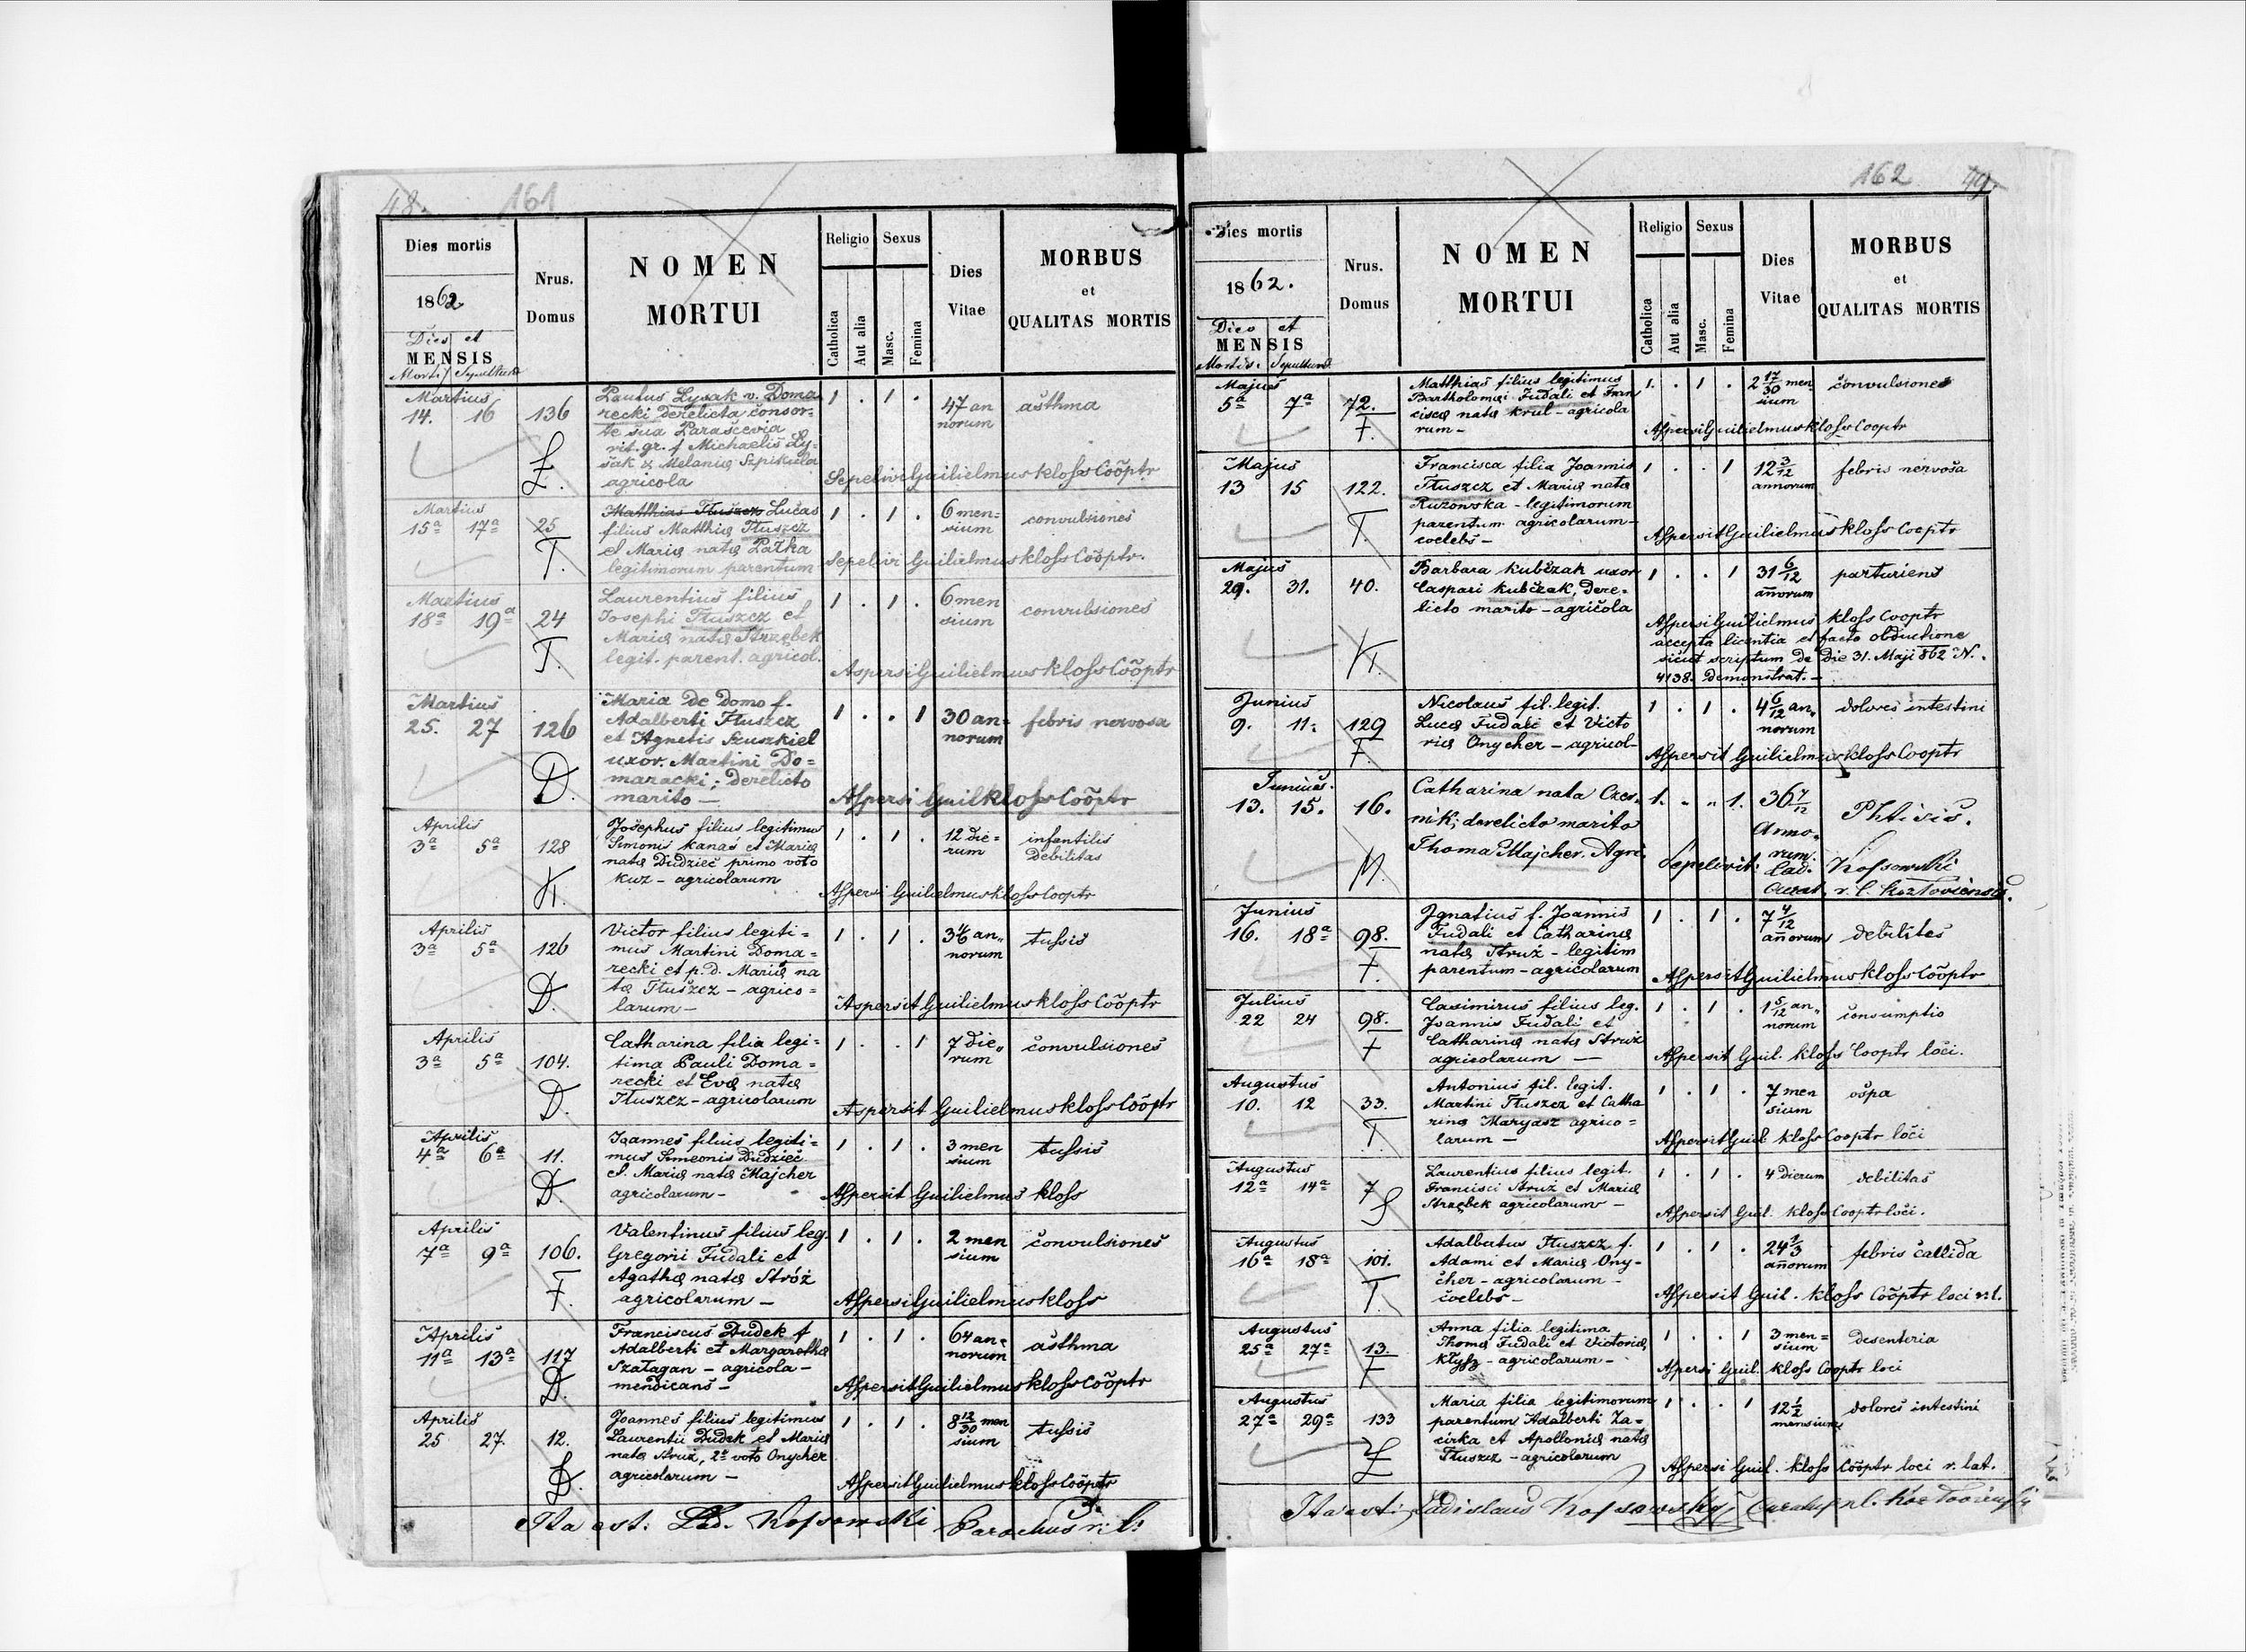 48. 161
Dies mortis
1862
Dies et
MENSIS
Mortis Sepulturae
Nrus.
Domus
NOMEN
MORTUI
Religio
Catholica
Aut alia
Sexus
Masc.
Femina
Dies
Vitae
MORBUS
et
QUALITAS MORTIS
Martius
14. 16 136
Ł.
Paulus Lysak v. Doma
recki derelicta consor=
te sua Parascevia
rit. gr. f Michaelis Ly=
sak & Melania Szpikula
agricola
1 . 1 .
47 an
norum
asthma
Sepelivi Guilielmus Kloss Cooptr
Martius
15a 17a 25
T.
Matthias Tłuszcz Lucas
filius Matthiæ Tłuszcz
et Mariæ natæ Pałka
legitimorum parentum
1 . 1 .
6 men=
sium
convulsiones
Sepelivi Guilielmus Kloss Cooptr.
Martius
18a 19a 24
T.
Laurentius filius
Josephi Tłuszcz et
Mariæ natæ Strzębek
legit. parent. agricol.
1 . 1 .
6 men
sium
convulsiones
Aspersi Guilielmus Kloss Cooptr
Martius
25. 27 126
D.
Maria de Domo f.
Adalberti Tłuszcz
et Agnetis Szuszkiel
uxor. Martini Do=
maracki; derelicto
marito —
1 . . 1
30 an=
norum
febris nervosa
Aspersi Guil Kloss Cooptr
Aprilis
3a 5a 128
K.
Josephus filius legitimus
Simonis Kanas et Mariæ
natæ Dudzieč primo voto
Kuz - agricolarum
1 . 1 .
12 die=
rum
infantilis
debilitas
Aspersi Guilielmus Kloss Cooptr
Aprilis
3a 5a 126
D.
Victor filius legiti=
mus Martini Doma=
recki et p. d. Mariæ na
tæ Tłuszcz - agrico=
larum —
1 . 1 .
an=
norum
tussis
Aspersit Guilielmus Kloss Cooptr
Aprilis
3a 5a 104.
D.
Catharina filia legi=
tima Pauli Doma=
recki et Evæ natæ
Tłuszcz - agricolarum
1 . . 1
7 die=
rum
convulsiones
Aspersit Guilielmus Kloss Cooptr
Aprilis
4a 6a 11.
D.
Joannes filius legiti=
mus Simeonis Dudzieč
et Mariæ natæ Majcher
agricolarum -
1 . 1 .
3 men
sium
tussis
Aspersit Guilielmus Kloss
Aprilis
7a 9a 106.
F.
Valentinus filius leg.
Gregorii Fudali et
Agathæ natæ Stróż
agricolarum —
1 . 1 .
2 men
sium
convulsiones
Aspersi Guilielmus Kloss
Aprilis
11a 13a 117
D.
Franciscus Dudek f
Adalberti et Margarethæ
Szałagan - agricola -
mendicans -
1 . 1 .
64 an=
norum
asthma
Aspersit Guilielmus Kloss Cooptr
Aprilis
25 27. 12.
D.
Joannes filius legitimus
Laurentii Dudek et Mariæ
natæ Struż, 2o voto Onycher
agricolarum —
1 . 1 .
8 12/30 men
sium
tussis
Aspersit Guilielmus Kloss Cooptr
Ita est: Lad. Kossowski Parochus r. l.
162
Dies mortis
1862.
Dies et
MENSIS
Mortis. Sepulturae
Nrus.
Domus
NOMEN
MORTUI
Religio
Catholica
Aut alia
Sexus
Masc.
Femina
Dies
Vitae
MORBUS
et
QUALITAS MORTIS
Majus
5a 7a 72.
F.
Matthias filius legitimus
Bartholomæi Fudali et Fran
ciscæ natæ Krul - agricola
rum -
1. . 1 .
2 17/30 men
sium
convulsiones
Aspersi Guilielmus Kloss Cooptr
Majus
13 15 122.
T.
Francisca filia Joannis
Tłuszcz et Mariæ natæ
Ruzowska - legitimorum
parentum agricolarum -
coelebs -
1 . . 1
12 3/12
annorum
febris nervosa
Aspersit Guilielmus Kloss Cooptr
Majus
29. 31. 40.
K.
Barbara Kubczak uxor
Caspari Kubczak, dere=
licto marito - agricola
1 . . 1
31 6/12
annorum
parturiens
Aspersi Guilielmus Kloss Cooptr
accepta licentia et facto obductione
sicut scriptum de die 31. Maji 862 N.
4138. demonstrat. —
Junius
9. 11. 129
F.
Nicolaus fil. legit.
Lucæ Fudali et Victo
riæ Onycher - agricol-
1 . 1 .
4 6/12 an=
norum
dolores intestini
Aspersit Guilielmus Kloss Cooptr
Junius.
13. 15. 16.
M.
Catharina nata Czer.
nik; derelicto marito
Thoma Majcher. Agri.
1. . . 1.
36 7/12
Anno=
rum.
Phtisis.
Sepelivit: Lad. Kossowski
Curat. r. l. Kozłoviensis.
Junius
16. 18a 98.
F.
Ignatius f. Joannis
Fudali et Catharinæ
natæ Struż - legitim
parentum - agricolarum
1 . 1 .
7 4/12
annorum
debilites
Aspersit Guilielmus Kloss Cooptr
Julius
22 24 98.
F
Casimirus filius leg.
Joannis Fudali et
Catharinæ natæ Struż
agricolarum —
1 . 1 .
1 5/12 an=
norum
consumptio
Aspersit Guil. Kloss Cooptr loci.
Augustus
10. 12 33.
T.
Antonius fil. legit.
Martini Tłuszcz et Catha
rinæ Maryasz agrico=
larum —
1 . 1 .
7 men
sium
ospa
Aspersit Guil. Kloss Cooptr loci
Augustus
12a 14a 7
S
Laurentius filius legit.
Francisci Struż et Mariæ
Strzębek agricolarum —
1 . 1 .
4 dierum
debilitas
Aspersit Guil. Kloss Cooptr loci.
Augustus
16a 18a 101.
T.
Adalbertus Tłuszcz f.
Adami et Mariæ Ony-
cher - agricolarum -
coelebs -
1 . 1 .
24 1/3
annorum
febris callida
Aspersit Guil. Kloss Cooptr loci r. l.
Augustus
25a 27a 13.
F
Anna filia legitima
Thomæ Fudali et Victoriæ
Kłysz - agricolarum -
1 . . 1
3 men=
sium
desenteria
Aspersi Guil. Kloss Cooptr loci
Augustus
27a 29a 133
Maria filia legitimorum
parentum Adalberti Za=
cirka et Apolloniæ natæ
Tłuszcz - agricolarum
1 . . 1
12 1/2
mensium
dolores intestini
Aspersi Guil. Kloss Cooptr loci r. lat.
Ita est: Ladislaus Kossowski